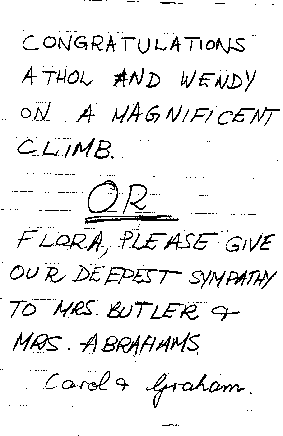 CONGRATULATIONS
ATHOL AND WENDY
ON A MAGNIFICENT
CLIMB.
OR
FLORA, PLEASE GIVE
OUR DEEPEST SYMPATHY
TO MRS. BUTLER &
MRS. ABRAHAMS
Carol & Graham.